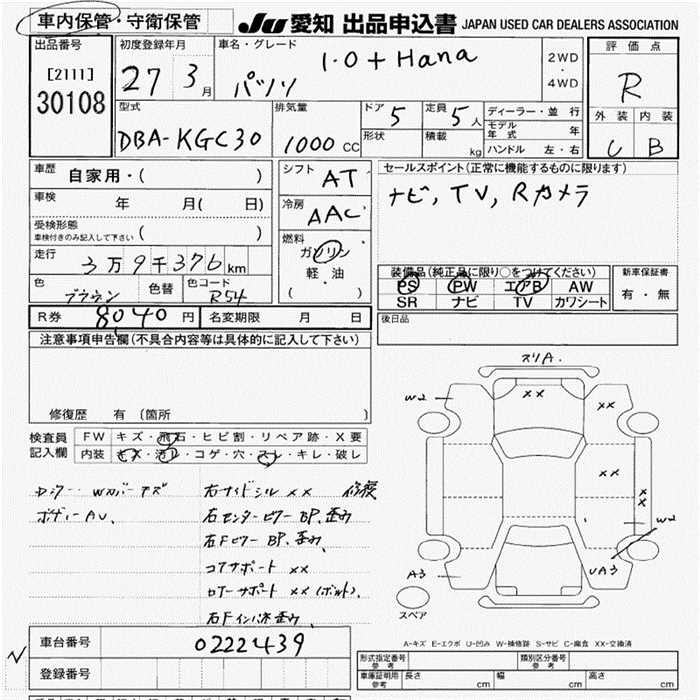 車内保管・守衛保管
JU 愛知 出品申込書 JAPAN USED CAR DEALERS ASSOCIATION
出品番号
[2111]
30108
初度登録年月
27 3月
車名・グレード
1.0 + Hana
パッソ
2WD
・
4WD
評価点
R
外装 内装
C B
型式
DBA-KGC30
排気量
1000 CC
ドア 5
形状
定員 5人
積載 kg
ディーラー・並行
モデル年式 年
ハンドル 左・右
車歴 自家用・( )
車検 年 月( 日)
受検形態
車検付きのみ記入して下さい ( )
走行 3万9千376km
色 ブラウン 色替 色コード R54
シフト AT
冷房 AAC
燃料
ガソリン
軽油
( )
セールスポイント(正常に機能するものに限ります)
ナビ, TV, Rカメラ
装備品(純正品に限り○をつけてください)
PS PW エアB AW
SR ナビ TV カワシート
新車保証書
有・無
R券 8040円 名変期限 月 日
後日品
注意事項申告欄(不具合内容等は具体的に記入して下さい)
修復歴 有 (箇所 )
検査員記入欄
FW キズ・飛石・ヒビ割・リペア跡・X要
内装 キズ・汚レ・コゲ・穴・スレ・キレ・破レ
ボディーAU、
右サイドシル ×× 修復
右センターピラー BP、歪み
右Fピラー BP、歪み、
コアサポート ××
ロアーサポート ××(ボルト)
右Fインパネ歪み、
スリA.
W2
××
××
××
×
×
W2
A3
UA3
スペア
A-キズ E-エクボ U-凹み W-補修跡 S-サビ C-腐食 XX-交換済
車台番号 0222439
登録番号
形式指定番号 参考
類別区分番号 参考
車庫証明用 参考 長さ cm 幅 cm 高さ cm